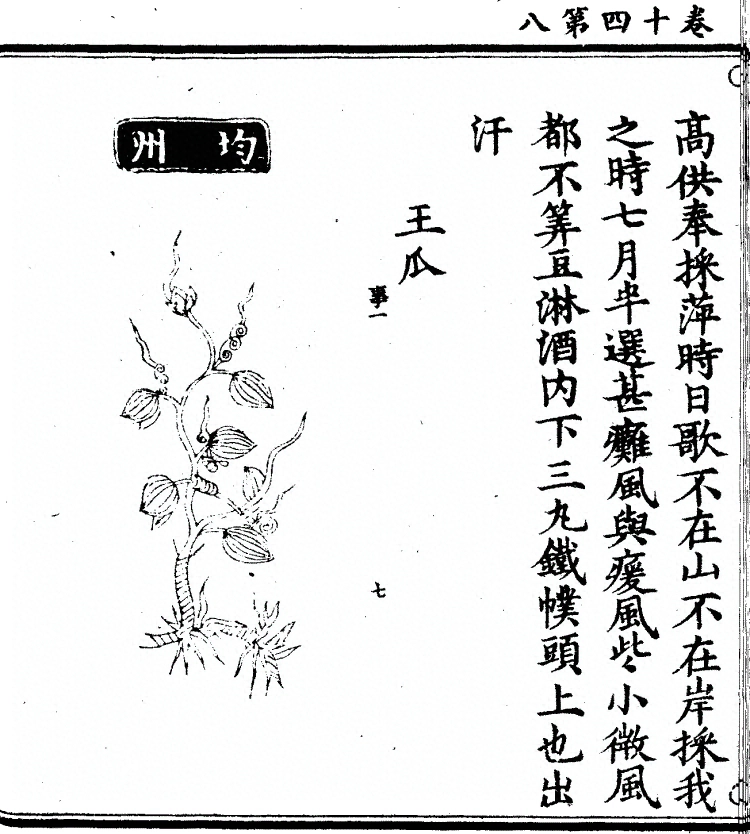 卷十四第八
髙供奉採萍時日歌不在山不在岸採我
之時七月半選甚癱風與瘓風些小微風
都不筭豆淋酒内下三丸鐵幞頭上也出
汗
王瓜
事一
七
均州